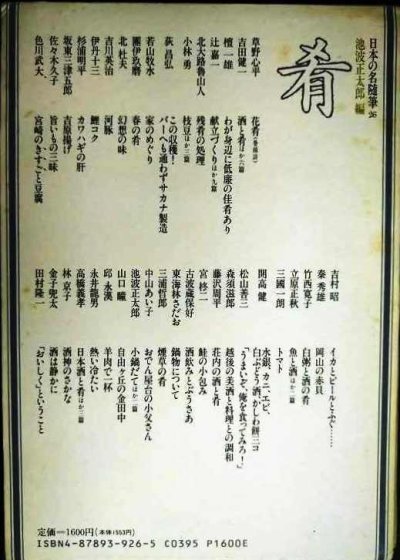 日本の名随筆 26
池波正太郎 編
肴
草野心平 花肴(巻頭詩)
吉田健一 酒と肴 ほか六篇
檀一雄 わが身辺に低廉の佳肴あり
辻嘉一 献立づくり ほか九篇
北大路魯山人 残肴の処理
小林勇 枝豆 ほか三篇
荻昌弘 この収穫!
バーへも通わずサカナ製造
若山牧水 家のめぐり
團伊玖磨 春の肴
北杜夫 幻想の味
吉川英治 河豚
伊丹十三 鯉コク
杉浦明平 カワハギの肝
坂東三津五郎 吉原揚げ
佐々木久子 旨いもの三昧
色川武大 宮崎のきすごと豆腐
吉村昭 イカとビールとふぐ……
秦秀雄 岡山の赤貝
竹西寛子 白粥と酒の肴
立原正秋 魚と酒 ほか二篇
三國一朗 トマト
開高健 水銀、カニ、エビ、
白ぶどう酒、かしわ餅三コ
松山善三 「うまいぞ、俺を食ってみろ!」
森須滋郎 越後の美酒と料理との調和
藤沢周平 荘内の酒と肴
宮柊二 鮭の小包み
古波蔵保好 酒飲みとぶうさあ
東海林さだお 鍋物について
三浦哲郎 煙草の肴
中山あい子 おでん屋台の小父さん
池波正太郎 小鍋だて ほか二篇
山口瞳 自由ヶ丘の金田中
邱永漢 羊肉で一杯
永井龍男 熱い冷たい
高橋義孝 日本酒と肴 ほか二篇
林京子 酒神のさかな
金子兜太 酒は静かに
田村隆一 「おいしく」ということ
定価=1600円(本体1553円)
ISBN4-87893-926-5 C0395 P1600E